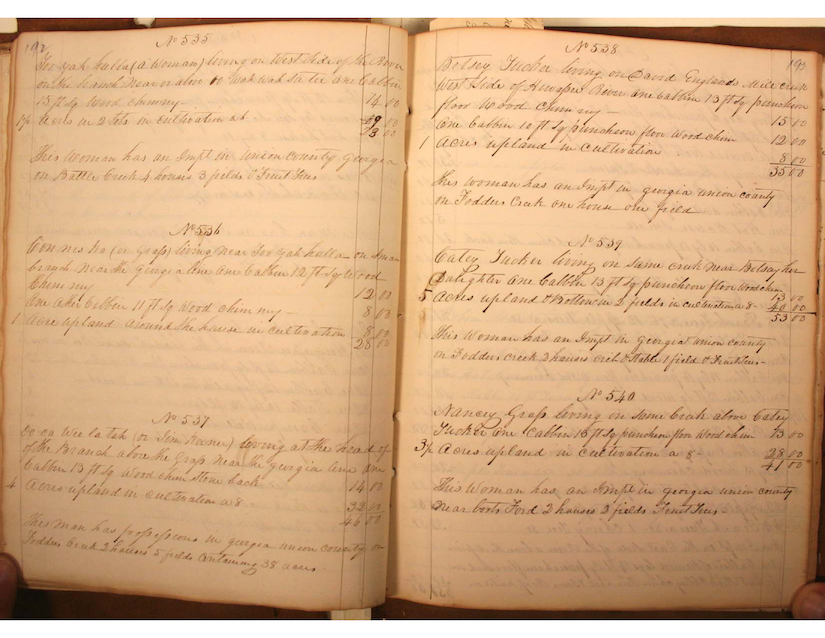 192
No 535
Too yah hulla (a Woman) living on West Side of the River
on the branch near or above one Cabbin
15 ft Sq Wood chimny — 14 00
Acres in 2 lots in cultivation a 6
This Woman has an Impt in Union County Georgia
on Battle Creek 4 houses 3 fields & Fruit Trees
No 536
(or Grass) living near Too yah hulla on
branch near the georgia line one Cabbin 12 ft Sq Wood
Chimny 12 00
One other Cabbin 11 ft Sq Wood chimny — 8 00
1 Acre upland around the house in cultivation 8 00
28 00
No 537
(or living at the head of
of the Branch above the Grass near the georgia line one
Cabbin 13 ft Sq Wood chim Stone back 14 00
4 Acres upland in cultivation a 8 — 32 00
46 00
This man has possessions in georgia union county on
Fodders Creek 2 houses 5 fields containing 38 acres.
193
No 538
Betsey Tucker living on David Englands Mill creek
West Side of River one Cabbin 15 ft Sq puncheon
floor Wood chimny — 15 00
One Cabbin 10 ft Sq puncheon floor Wood chim 12 00
1 Acres upland in Cultivation 8 00
35 00
This woman has an Impt in georgia union county
on Fodders Creek one house one field
No 539
Caley Tucker living on same creek near Betsey her
Daughter one Cabbin 13 ft Sq puncheon floor Wood chim 13 00
5 Acres upland & Bottom in 2 fields in cultivation a 8 — 40 00
53 00
This Woman has an Impt in Georgia union county
on Fodders creek 2 houses crib & Stable 1 field & Fruit Trees —
No 540
Nancy Grass living on same Creek above Caley
Tucker one Cabbin 13 ft Sq puncheon floor Wood chim 13 00
3½ Acres upland in cultivation a 8 — 28 00
41 00
This Woman has an Impt in georgia union county
near Ford 2 houses 2 fields Fruit Trees —